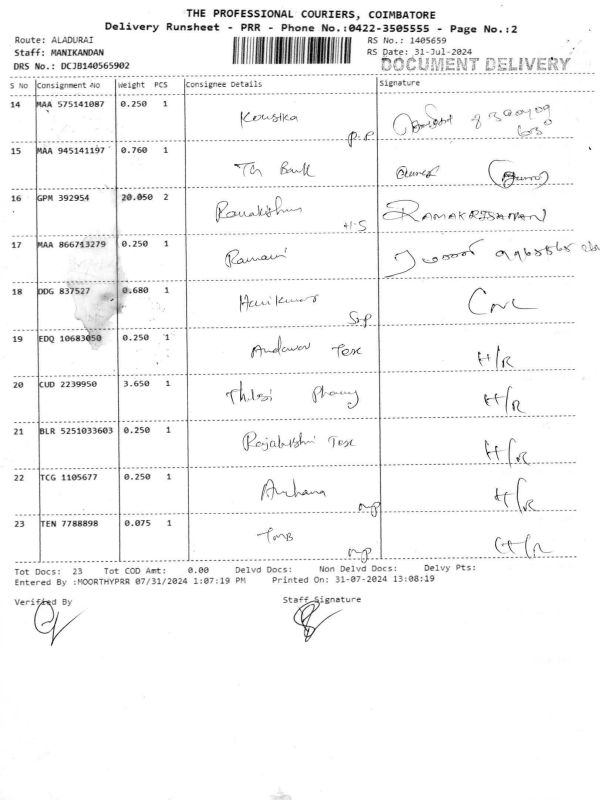 THE PROFESSIONAL COURIERS, COIMBATORE
Delivery Runsheet - PRR - Phone No.:0422-3505555 - Page No.:2
Route: ALADURAI RS No.: 1405659
Staff: MANIKANDAN RS Date: 31-Jul-2024
DRS No.: DCJB140565902 DOCUMENT DELIVERY
S No Consignment No Weight PCS Consignee Details Signature
14 MAA 575141087 0.250 1 Kousika
P.P
15 MAA 945141197 0.760 1 Bank
16 GPM 392954 20.050 2 Ramakishnn H.S RAMAKRISHNAN
17 MAA 866713279 0.250 1 Ramani
18 DDG 837527 0.680 1 Harikumar CNL
19 EDQ 10683050 0.250 1 Andavar Tex H/R
20 CUD 2239950 3.650 1 H/R
21 BLR 5251033603 0.250 1 Rajalakshmi Tex H/R
22 TCG 1105677 0.250 1 Archana mp H/R
23 TEN 7788898 0.075 1 TMB mp H/R
Tot Docs: 23 Tot COD Amt: 0.00 Delvd Docs: Non Delvd Docs: Delvy Pts:
Entered By :MOORTHYPRR 07/31/2024 1:07:19 PM Printed On: 31-07-2024 13:08:19
Verified By Staff Signature